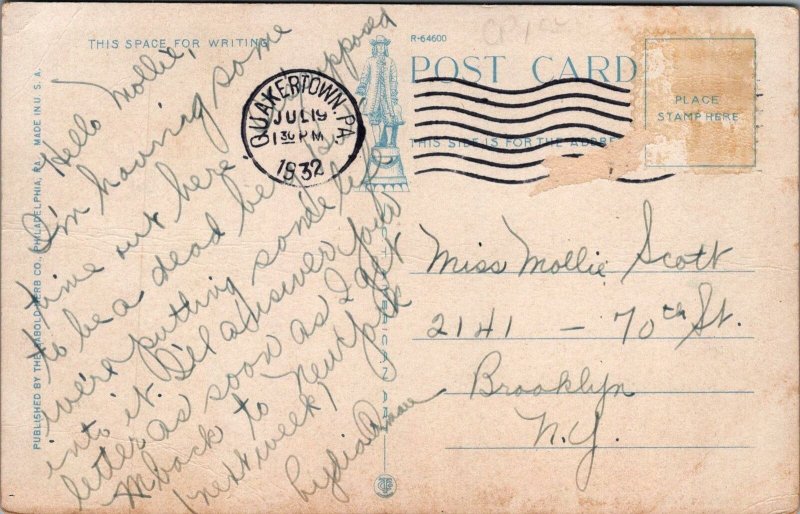 THIS SPACE FOR WRITING
R-64600
POST CARD
PLACE
STAMP HERE
THIS SIDE IS FOR THE ADDRE
QUAKERTOWN, PA.
JUL 19
1 30 P.M.
1932
PUBLISHED BY THE SABOLD-HERB CO., PHILADELPHIA, PA. MADE IN U. S. A.
Hello Mollie,
I'm having some
time out here. Supposed
to be a dead be
we're putting some life
into it. I'll answer your
letter as soon as I get
back to New York
next week!
Lydia
Miss Mollie Scott
2141 - 70th St.
Brooklyn
N.Y.